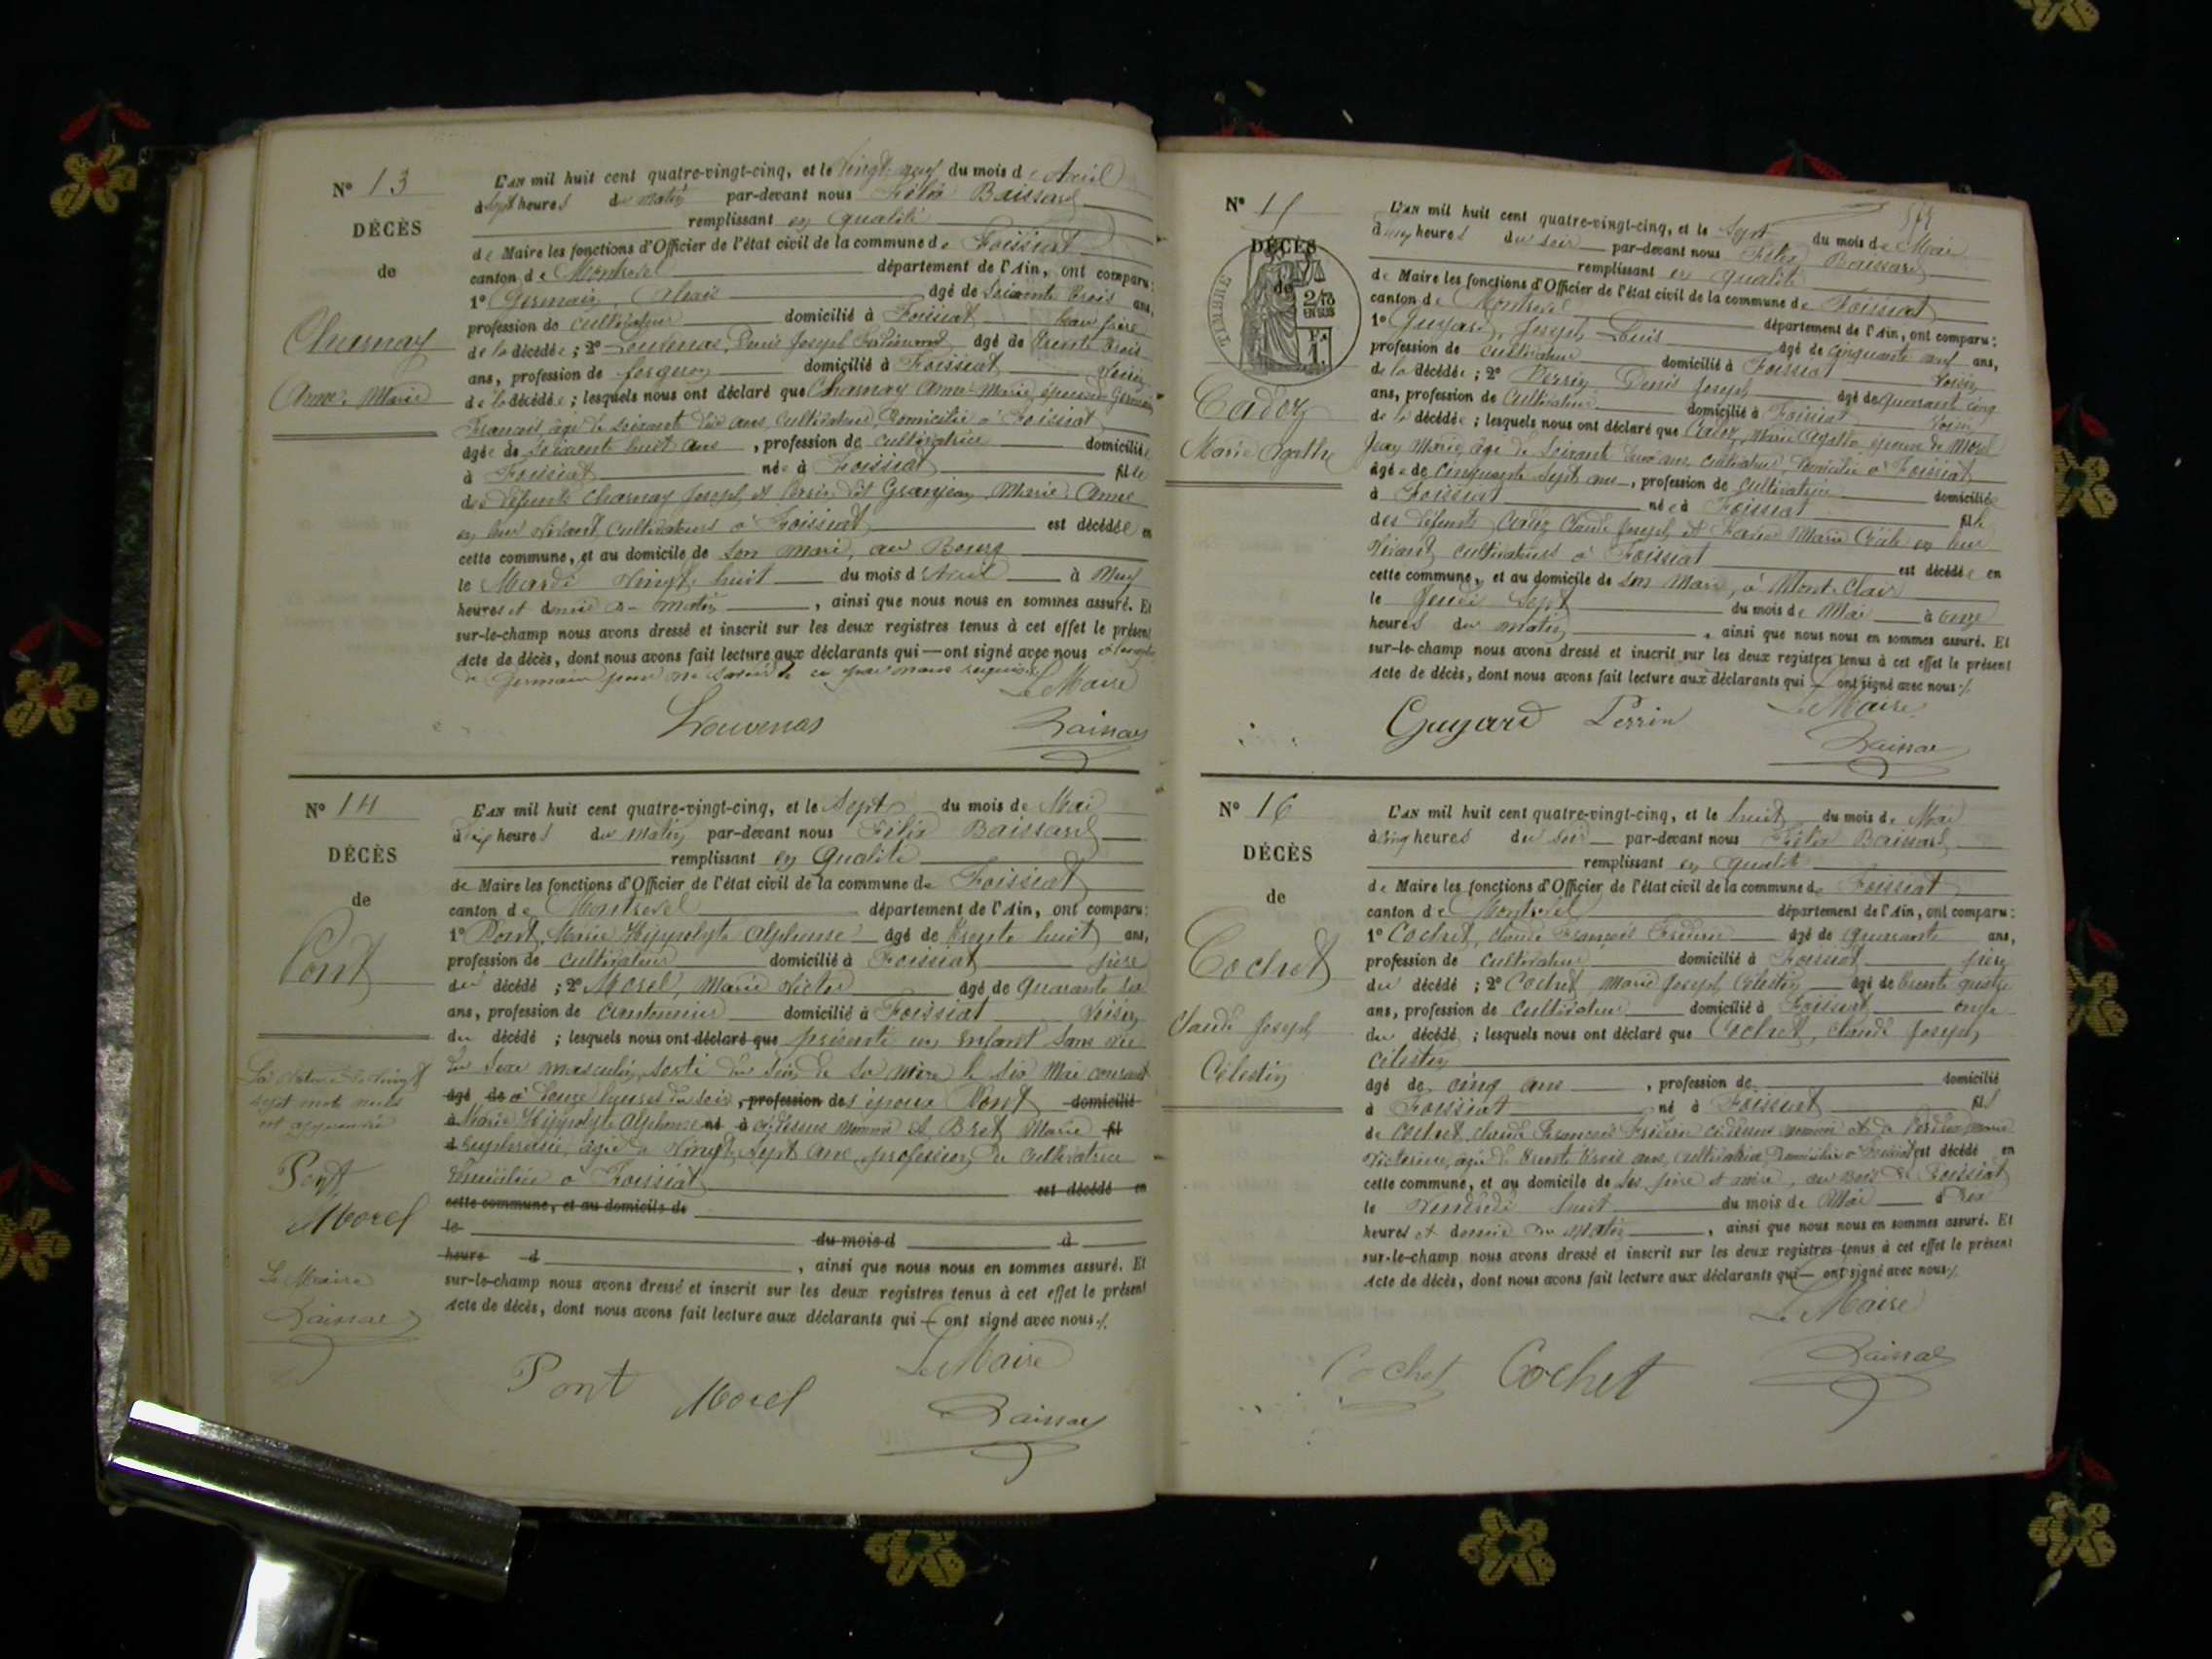 N° 13
DÉCÈS
de
Charnay
Anne-Marie
L'AN mil huit cent quatre-vingt-cinq, et le Vingt neuf du mois d'Avril
à Sept heures du matin par-devant nous Félix Baissard
remplissant en qualité
de Maire les fonctions d'Officier de l'état civil de la commune de Foissiat
canton de Montrevel département de l'Ain, ont comparu:
1° Germain, agé de Soixante trois ans,
profession de cultivateur domicilié à Foissiat beau frère
de la décédée; 2° Louvenas, Denis Joseph Ferdinand agé de Trente trois
ans, profession de forgeron domicilié à Foissiat Voisin
de la décédée; lesquels nous ont déclaré que Charnay Anne-Marie, épouse de Germain
François, âgé de soixante dix ans, Cultivateur, Domicilié à Foissiat
âgée de Soixante huit ans, profession de cultivatrice domiciliée
à Foissiat née à Foissiat fille
des défunts Charnay Joseph et Perrin dit Granjean, Marie Anne
en leur vivant, cultivateurs à Foissiat est décédée en
cette commune, et au domicile de son mari, au Bourg
le Mardi Vingt huit du mois d'Avril à Neuf
heures et demie du matin, ainsi que nous nous en sommes assuré. Et
sur-le-champ nous avons dressé et inscrit sur les deux registres tenus à cet effet le présent
Acte de décès, dont nous avons fait lecture aux déclarants qui — ont signé avec nous
de Germain pour ne savoir de ce par nous requis
Le Maire
Louvenas
Baissard
N° 14
DÉCÈS
de
Pont
L'AN mil huit cent quatre-vingt-cinq, et le Sept du mois de Mai
à Six heures du matin par-devant nous Félix Baissard
remplissant en qualité
de Maire les fonctions d'Officier de l'état civil de la commune de Foissiat
canton de Montrevel département de l'Ain, ont comparu:
1° Pont, Marie Hippolyte Alphonse âgé de trente huit ans,
profession de cultivateur domicilié à Foissiat père
du décédé; 2° Morel, Marie Victor âgé de quarante
ans, profession de cantonnier domicilié à Foissiat Voisin
du décédé; lesquels nous ont déclaré que présenté un enfant sans vie
du Sexe masculin, sorti du sein de sa mère le six Mai courant
agé de à douze heures du soir, profession des époux Pont domicilié
à Marie Hippolyte Alphonse né à ci-dessus nommé et Bret Marie fil
d Euphrasie, âgée de Vingt sept ans, profession de cultivatrice
Domiciliée à Foissiat est décédé en
cette commune, et au domicile de
le du mois d à
heure d, ainsi que nous nous en sommes assuré. Et
sur-le-champ nous avons dressé et inscrit sur les deux registres tenus à cet effet le présent
Acte de décès, dont nous avons fait lecture aux déclarants qui ont signé avec nous
La rature de vingt
sept mots nuls
est approuvée
Pont
Morel
Le Maire
Baissard
Le Maire
Pont Morel
Baissard
N° 15
DÉCÈS
de
TIMBRE
2/10
EN SUS
Cadoz
Marie Agathe
L'AN mil huit cent quatre-vingt-cinq, et le Sept du mois de Mai
à heures du soir par-devant nous Félix Baissard
remplissant en qualité
de Maire les fonctions d'Officier de l'état civil de la commune de Foissiat
canton de Montrevel département de l'Ain, ont comparu:
1° Guyard, Joseph Louis âgé de cinquante neuf ans,
profession de cultivateur domicilié à Foissiat Voisin
de la décédée; 2° Perrin Denis Joseph âgé de quarante cinq
ans, profession de Cultivateur domicilié à Foissiat Voisin
de la décédée; lesquels nous ont déclaré que Cadoz, Marie Agathe épouse de Morel
Jean Marie, âgé de Soixante deux ans, cultivateur, Domicilié à Foissiat
âgée de cinquante sept ans, profession de Cultivatrice domiciliée
à Foissiat née à Foissiat fille
des défunts Cadoz Claude Joseph et Marie en leur
Vivant cultivateurs à Foissiat est décédée en
cette commune, et au domicile de son Mari, à Mont-Clair
le Jeudi Sept du mois de Mai à onze
heures du matin, ainsi que nous nous en sommes assuré. Et
sur-le-champ nous avons dressé et inscrit sur les deux registres tenus à cet effet le présent
Acte de décès, dont nous avons fait lecture aux déclarants qui ont signé avec nous
Le Maire
Guyard Perrin
Baissard
N° 16
DÉCÈS
de
Cochet
Claude Joseph
Célestin
L'AN mil huit cent quatre-vingt-cinq, et le huit du mois de Mai
à cinq heures du soir par-devant nous Félix Baissard
remplissant en qualité
de Maire les fonctions d'Officier de l'état civil de la commune de Foissiat
canton de Montrevel département de l'Ain, ont comparu:
1° Cochet, Claude François Frédéric âgé de quarante ans,
profession de cultivateur domicilié à Foissiat père
du décédé; 2° Cochet, Marie Joseph Célestin âgé de trente quatre
ans, profession de Cultivateur domicilié à Foissiat oncle
du décédé; lesquels nous ont déclaré que Cochet, Claude Joseph
Célestin
âgé de cinq ans, profession de domicilié
à Foissiat né à Foissiat fils
de Cochet, Claude François Frédéric ci-dessus nommé et de Marie
Victorine, âgée de trente trois ans, cultivatrice, Domiciliée à Foissiat est décédé en
cette commune, et au domicile de ses père et mère, au Bois de Foissiat
le Vendredi huit du mois de Mai à dix
heures et demie du matin, ainsi que nous nous en sommes assuré. Et
sur-le-champ nous avons dressé et inscrit sur les deux registres tenus à cet effet le présent
Acte de décès, dont nous avons fait lecture aux déclarants qui — ont signé avec nous
Le Maire
Cochet Cochet
Baissard